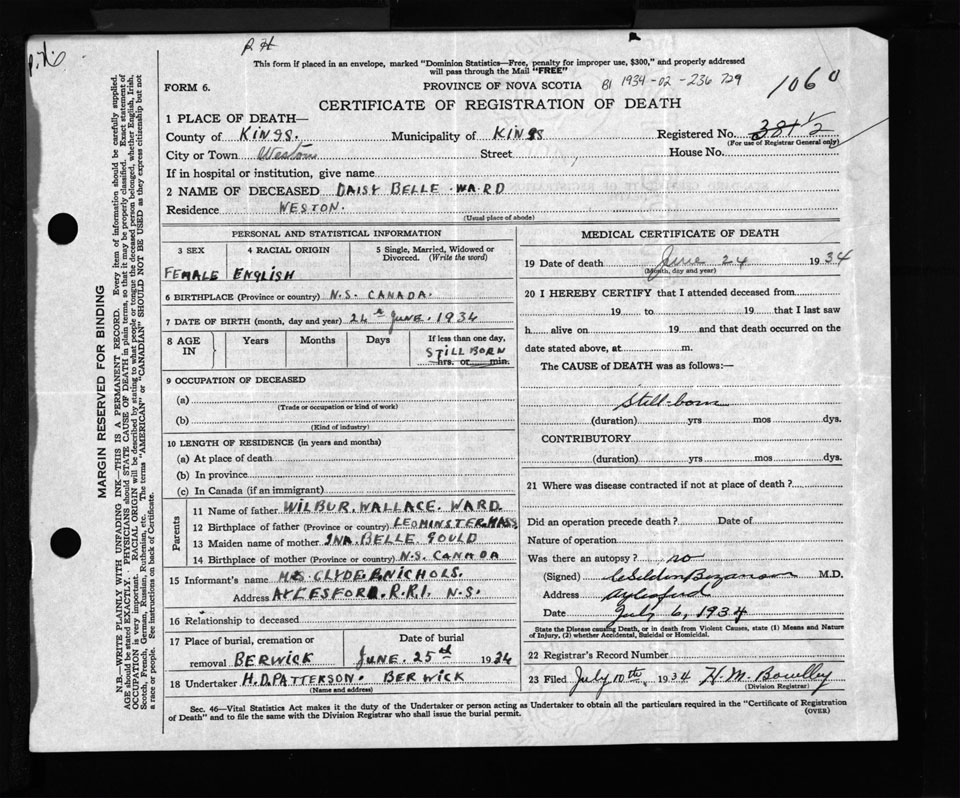 P.H.
R H
This form if placed in an envelope, marked "Dominion Statistics—Free, penalty for improper use, $300," and properly addressed
will pass through the Mail "FREE"
FORM 6.
PROVINCE OF NOVA SCOTIA
1934-02-236729
1060
CERTIFICATE OF REGISTRATION OF DEATH
1 PLACE OF DEATH—
County of KINGS. Municipality of KINGS Registered No. 381½
(For use of Registrar General only)
City or Town Weston Street House No.
If in hospital or institution, give name
2 NAME OF DECEASED DAISY BELLE WARD
Residence WESTON.
(Usual place of abode)
PERSONAL AND STATISTICAL INFORMATION
3 SEX 4 RACIAL ORIGIN 5 Single, Married, Widowed or
Divorced. (Write the word)
FEMALE ENGLISH
6 BIRTHPLACE (Province or country) N.S. CANADA.
7 DATE OF BIRTH (month, day and year) 24th JUNE. 1934
8 AGE IN Years Months Days If less than one day,
STILLBORN
hrs. or min.
9 OCCUPATION OF DECEASED
(a)
(Trade or occupation or kind of work)
(b)
(Kind of industry)
10 LENGTH OF RESIDENCE (in years and months)
(a) At place of death
(b) In province
(c) In Canada (if an immigrant)
Parents
11 Name of father WILBUR. WALLACE. WARD.
12 Birthplace of father (Province or country) LEOMINSTER MASS
13 Maiden name of mother INA. BELLE GOULD
14 Birthplace of mother (Province or country) N.S. CANADA
15 Informant's name MRS CLYDE E NICHOLS.
Address AYLESFORD. R.R.1. N.S.
16 Relationship to deceased
17 Place of burial, cremation or Date of burial
removal BERWICK JUNE. 25th 1934
18 Undertaker H.D. PATTERSON. BERWICK
(Name and address)
MEDICAL CERTIFICATE OF DEATH
19 Date of death June 24 1934
(Month, day and year)
20 I HEREBY CERTIFY that I attended deceased from
19 to 19 that I last saw
h alive on 19 and that death occurred on the
date stated above, at m.
The CAUSE of DEATH was as follows:—
Still-born
(duration) yrs mos dys.
CONTRIBUTORY
(duration) yrs mos dys.
21 Where was disease contracted if not at place of death?
Did an operation precede death? Date of
Nature of operation
Was there an autopsy? no
(Signed) Bezanson M.D.
Address Aylesford
Date July 6, 1934
State the Disease causing Death, or in death from Violent Causes, state (1) Means and Nature
of Injury, (2) whether Accidental, Suicidal or Homicidal.
22 Registrar's Record Number
23 Filed July 10th, 1934 H. M.
(Division Registrar)
Sec. 46—Vital Statistics Act makes it the duty of the Undertaker or person acting as Undertaker to obtain all the particulars required in the "Certificate of Registration
of Death" and to file the same with the Division Registrar who shall issue the burial permit.
(OVER)
MARGIN RESERVED FOR BINDING
N.B.—WRITE PLAINLY WITH UNFADING INK—THIS IS A PERMANENT RECORD. Every item of information should be carefully supplied.
AGE should be stated EXACTLY. PHYSICIANS should STATE CAUSE OF DEATH in plain terms, so that it may be properly classified. Exact statement of
OCCUPATION is very important. RACIAL ORIGIN will be described by stating to what people or tongue the deceased person belonged, whether English, Irish,
Scotch, French, German, Russian, Ruthenian, etc. The terms "AMERICAN" or "CANADIAN" SHOULD NOT BE USED as they express citizenship but not
a race or people. See instructions on back of Certificate.